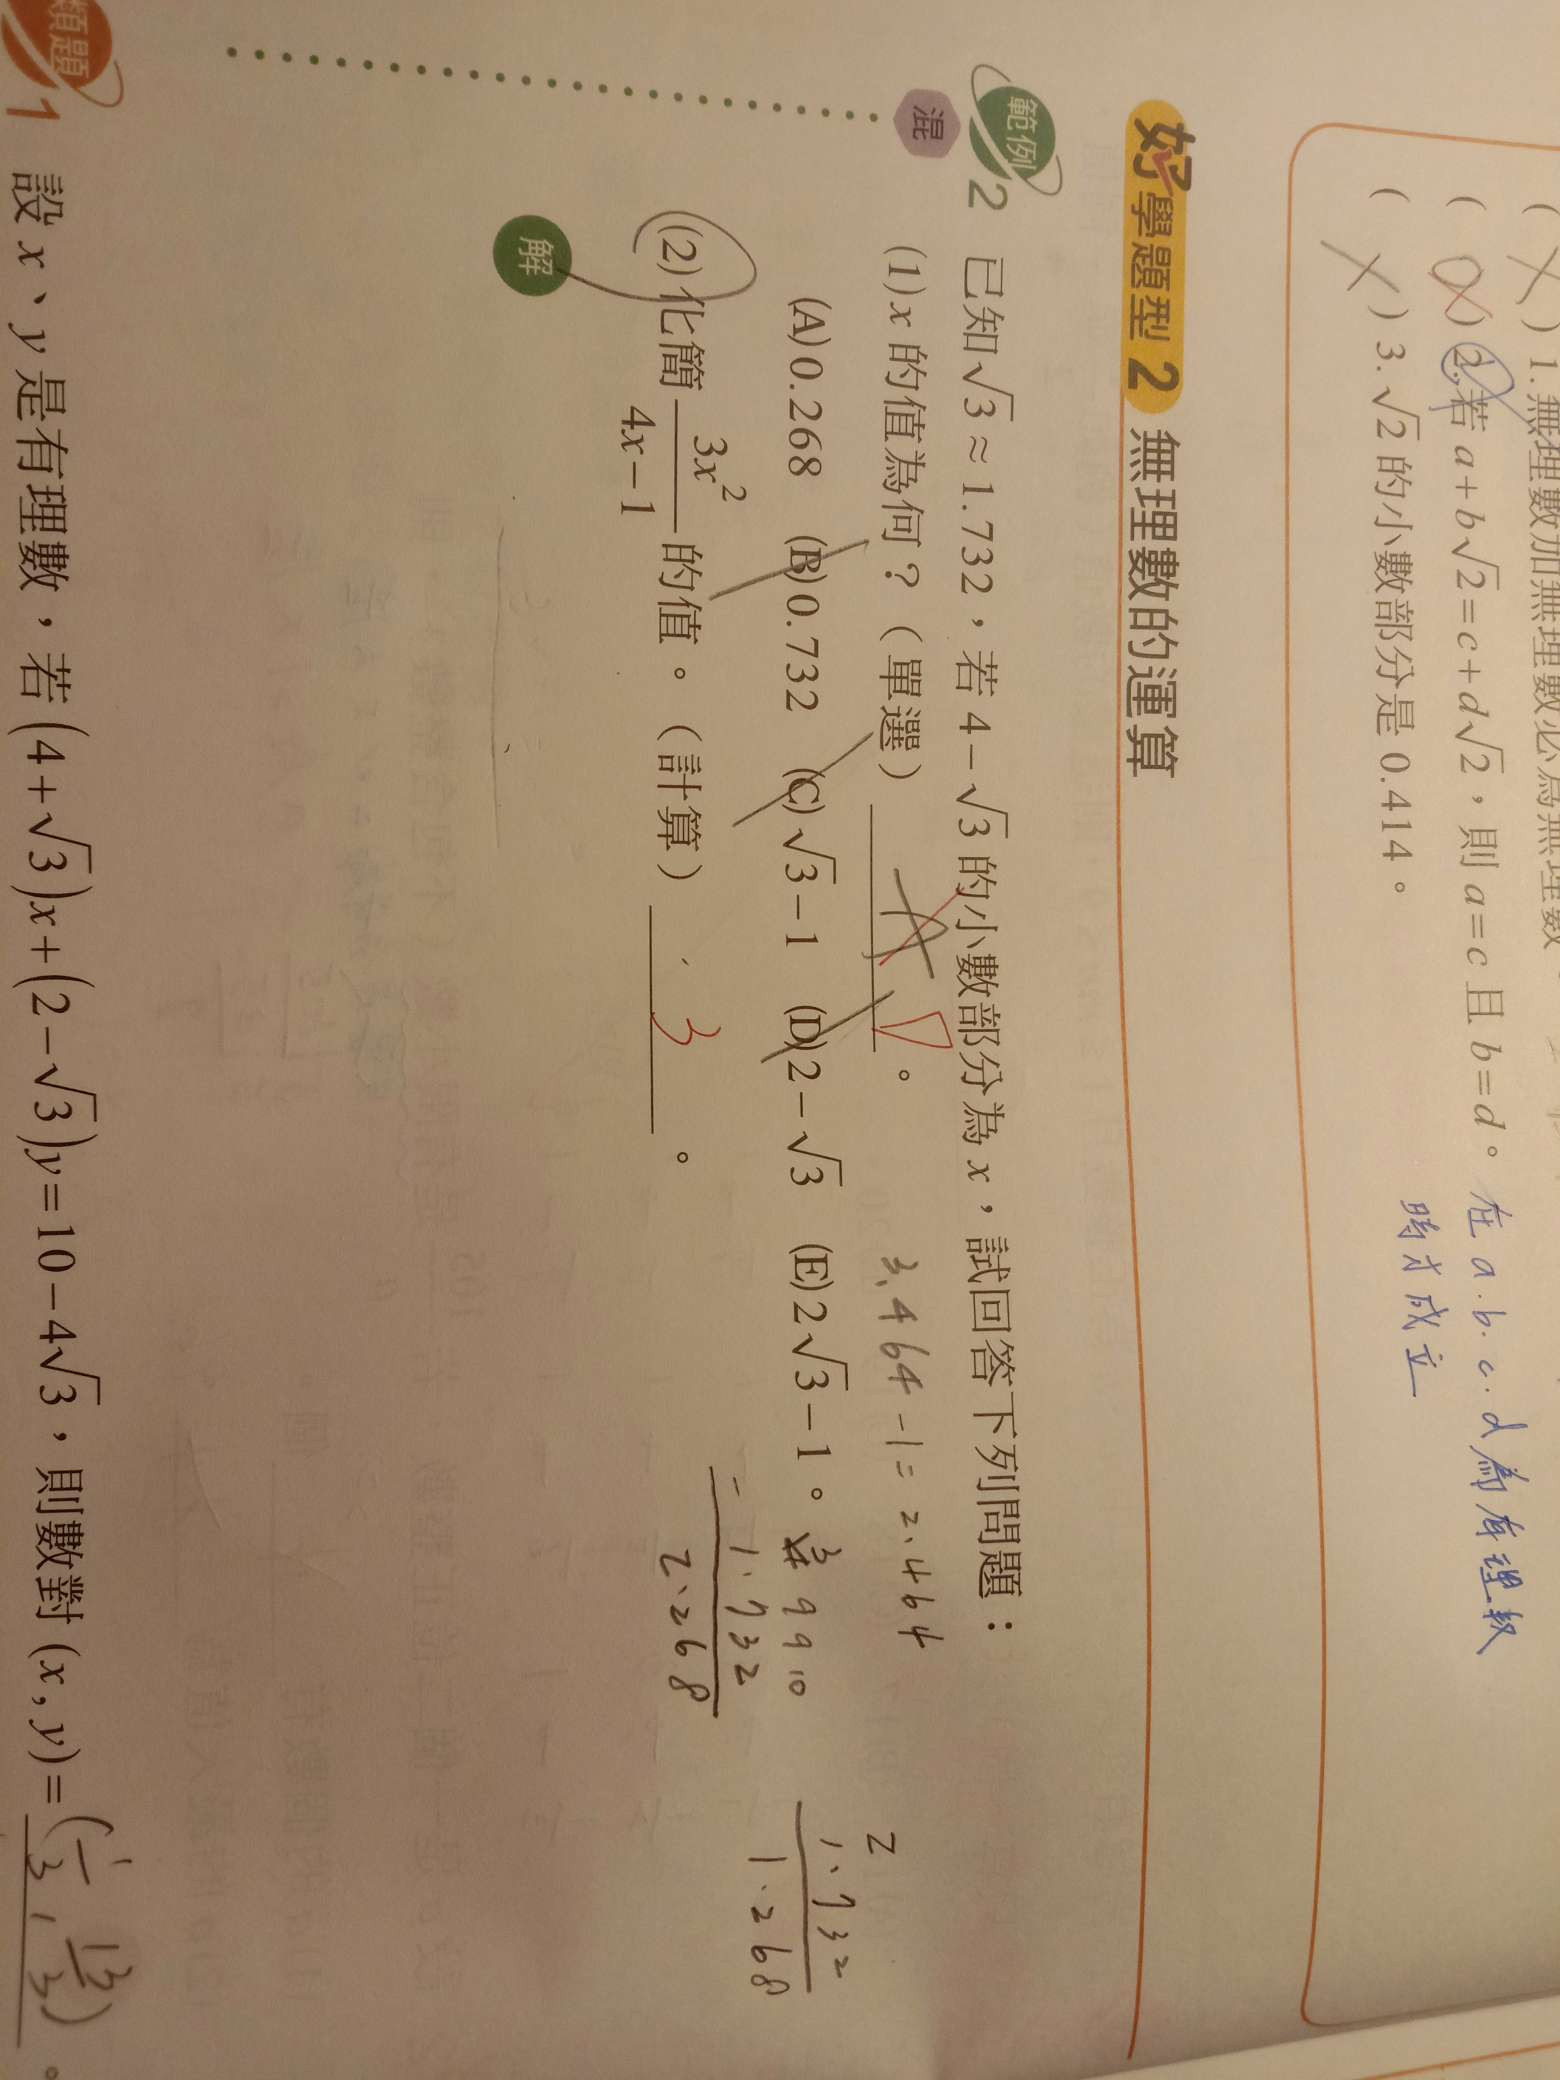 ( X ) 1.無理數加無理數必為無理數。
( ) 2.若 a+b√2=c+d√2，則 a=c 且 b=d。 在 a.b.c.d 為有理數
時才成立
( X ) 3.√2 的小數部分是 0.414。
好學題型 2 無理數的運算
範例 2 已知√3≈1.732，若 4-√3 的小數部分為 x，試回答下列問題：
混
(1)x 的值為何？（單選） A D 。 3.464-1=2.464
(A)0.268 (B)0.732 (C)√3-1 (D)2-√3 (E)2√3-1。
3 9 9 10
-1.732
2.268
2
1.732
1.268
(2)化簡 3x²/(4x-1) 的值。（計算） 3 。
解
類題 1 設 x、y 是有理數，若 (4+√3)x+(2-√3)y=10-4√3，則數對 (x,y)= (1/3, 13/3) 。